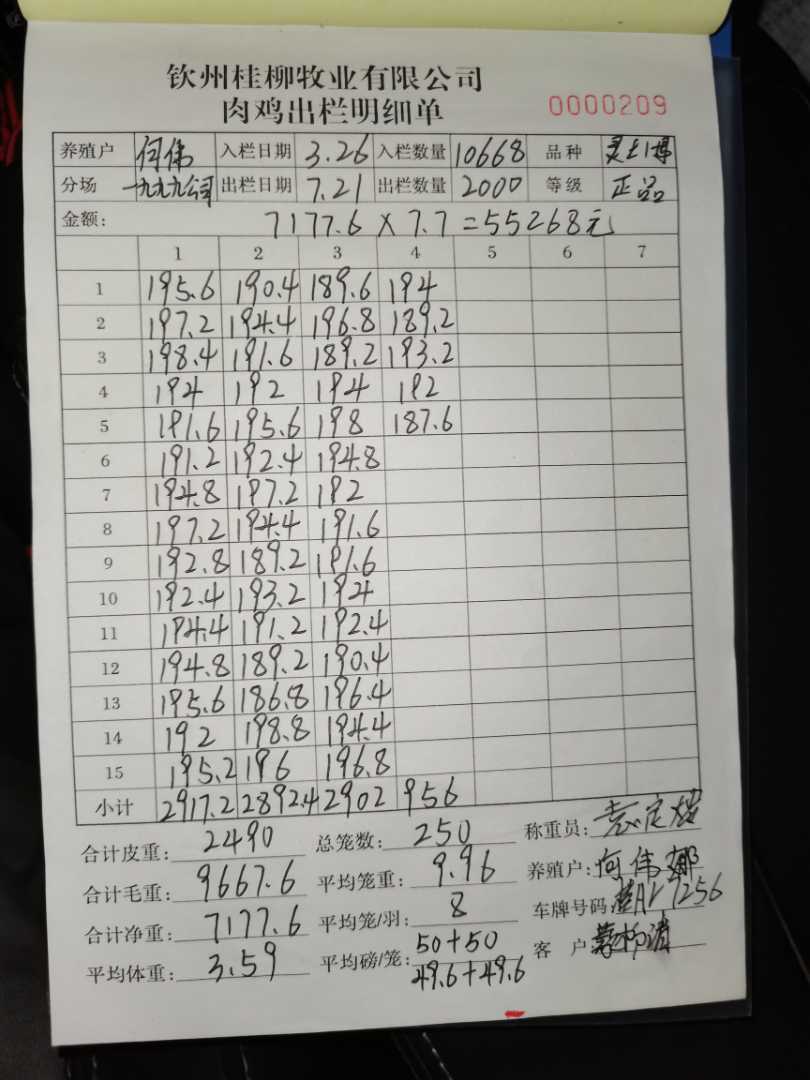 钦州桂柳牧业有限公司
肉鸡出栏明细单 0000209
养殖户 何伟 入栏日期 3.26 入栏数量 10668 品种
分场 一九九九公司 出栏日期 7.21 出栏数量 2000 等级 正品
金额: 7177.6 X 7.7 =55268元
1 2 3 4 5 6 7
1 195.6 190.4 189.6 194
2 197.2 194.4 196.8 189.2
3 198.4 191.6 189.2 193.2
4 194 192 194 192
5 191.6 195.6 198 187.6
6 191.2 192.4 194.8
7 194.8 197.2 192
8 197.2 194.4 191.6
9 192.8 189.2 191.6
10 192.4 193.2 194
11 194.4 191.2 192.4
12 194.8 189.2 190.4
13 195.6 186.8 196.4
14 192 198.8 194.4
15 195.2 196 196.8
小计 2917.2 2892.4 2902 956
合计皮重: 2490 总笼数: 250 称重员:
合计毛重: 9667.6 平均笼重: 9.96 养殖户: 何伟
合计净重: 7177.6 平均笼/羽: 8 车牌号码:
平均体重: 3.59 平均磅/笼: 50+50 客户
49.6+49.6